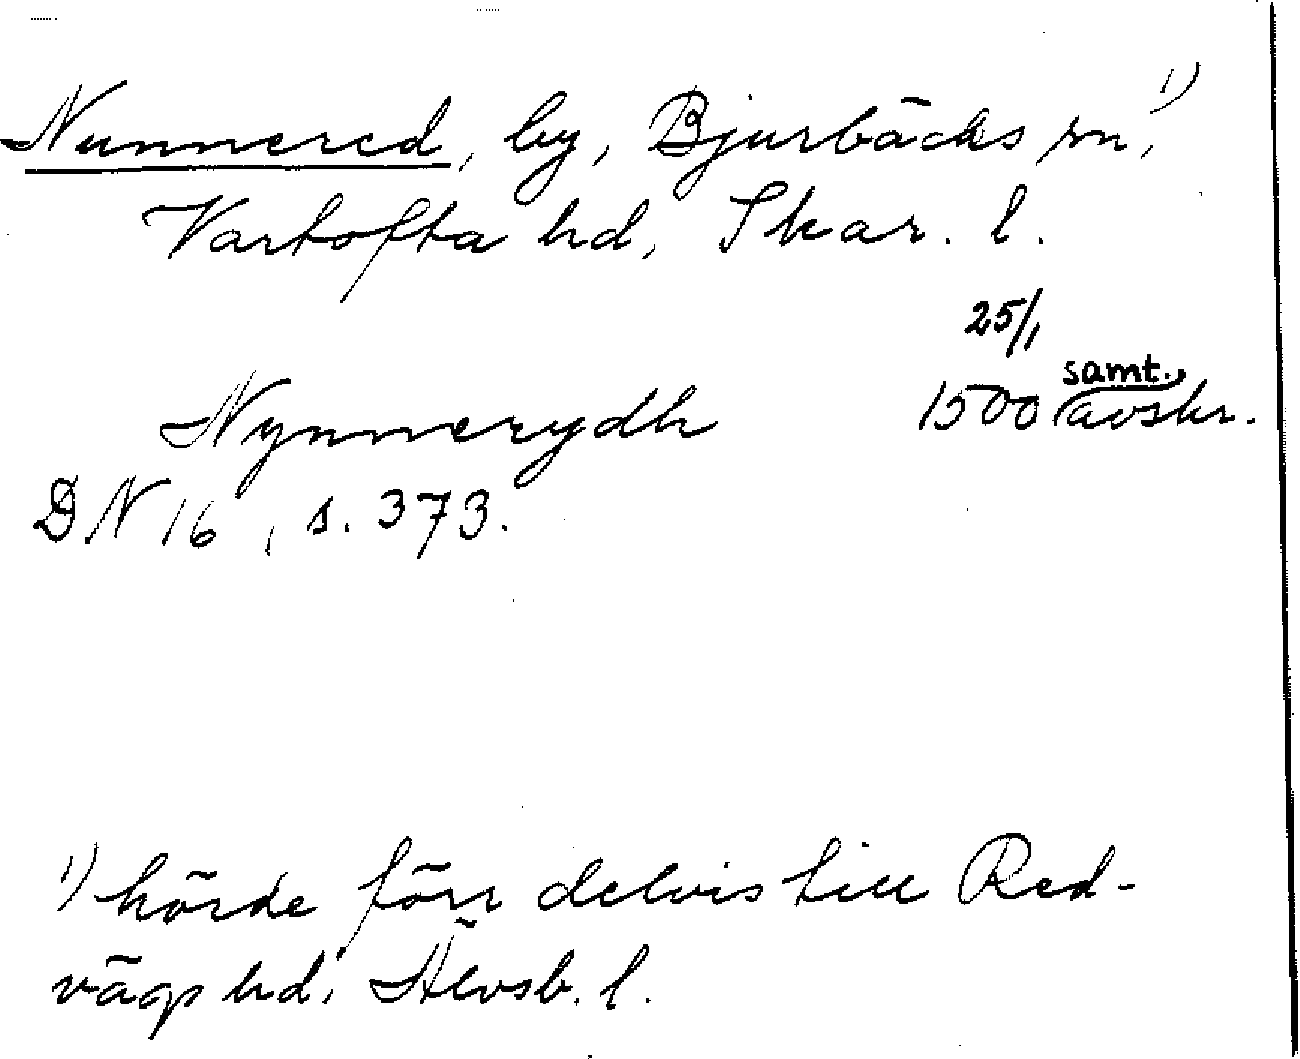 Nunnered, by, Bjurbäcks sn,¹⁾
Vartofta hd, Skar. l.
25/1
samt.
Nynnerydh 1500 avskr.
DN 16, s. 373.
¹⁾ hörde förr delvis till Red-
vägs hd, Älvsb. l.